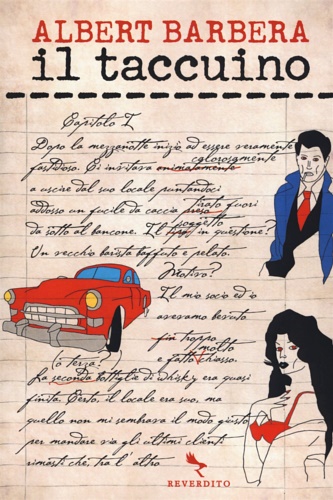 ALBERT BARBERA
il taccuino
Capitolo I
Dopo la mezzanotte iniziò ad essere veramente
calorosamente
fastidioso. Ci invitava animatamente
a uscire dal suo locale puntandoci
tirato fuori
addosso un fucile da caccia preso
soggetto
da sotto al bancone. Il tipo in questione?
Un vecchio barista baffuto e pelato.
Motivo?
Il mio socio ed io
avevamo bevuto
fin troppo
molto
e fatto chiasso.
(o terza?
La seconda bottiglia di whisky era quasi
finita. Certo, il locale era suo, ma
quello non mi sembrava il modo giusto
per mandare via gli ultimi clienti
rimasti che tra l'altro
REVERDITO